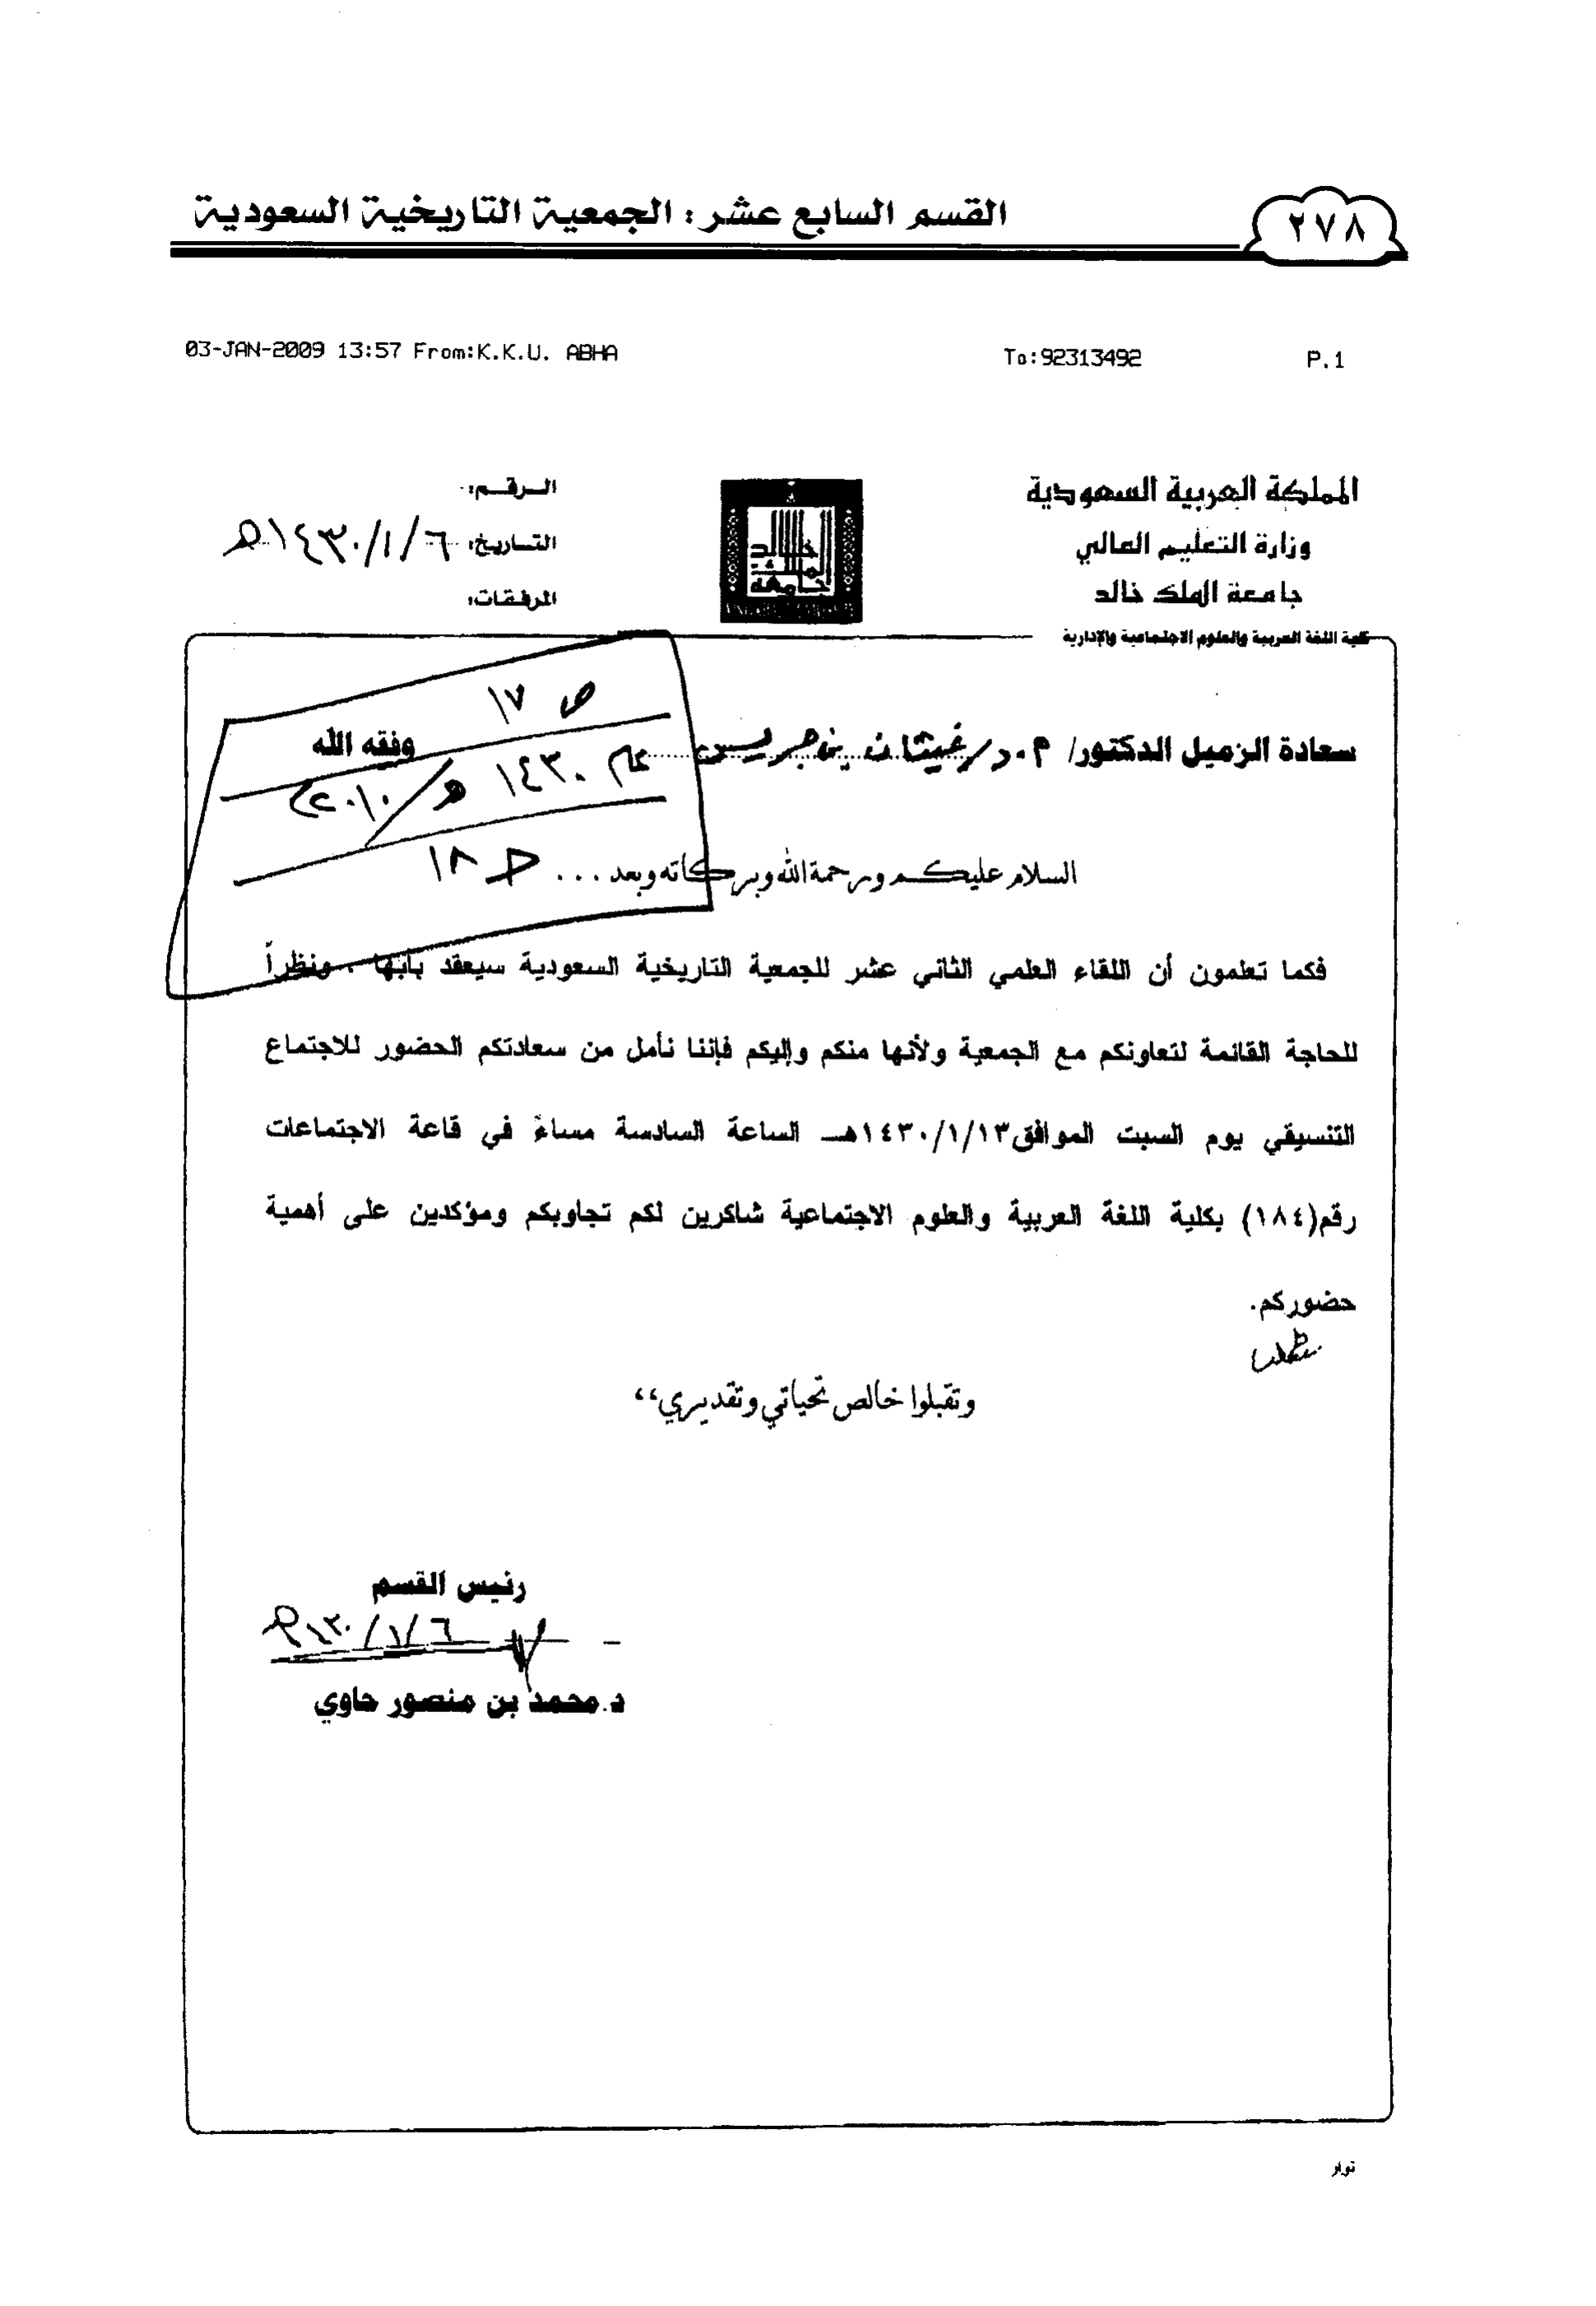 ٢٧٨
القسم السابع عشر : الجمعية التاريخية السعودية
03-JAN-2009 13:57 From:K.K.U. ABHA To:92313492 P.1
المملكة العربية السعودية
وزارة التعليم العالي
جامعة الملك خالد
كلية اللغة العربية والعلوم الاجتماعية والإدارية
جامعة
الملك
خالد
الرقم:
التاريخ: ٦/١/١٤٣٠هـ
المرفقات:
ص ١٧
عام ١٤٣٠هـ/٢٠١٠م
ج ١٨
سعادة الزميل الدكتور/ أ.د/غيثان بن جريس وفقه الله
السلام عليكم ورحمة الله وبركاته وبعد ...
فكما تعلمون أن اللقاء العلمي الثاني عشر للجمعية التاريخية السعودية سيعقد بأبها ، ونظراً
للحاجة القائمة لتعاونكم مع الجمعية ولأنها منكم وإليكم فإننا نأمل من سعادتكم الحضور للاجتماع
التنسيقي يوم السبت الموافق١٤٣٠/١/١٣هـ الساعة السادسة مساءً في قاعة الاجتماعات
رقم(١٨٤) بكلية اللغة العربية والعلوم الاجتماعية شاكرين لكم تجاوبكم ومؤكدين على أهمية
حضوركم.
وتقبلوا خالص تحياتي وتقديري،،
رئيس القسم
٦/١/١٤٣٠هـ
د.محمد بن منصور حاوي
نوار